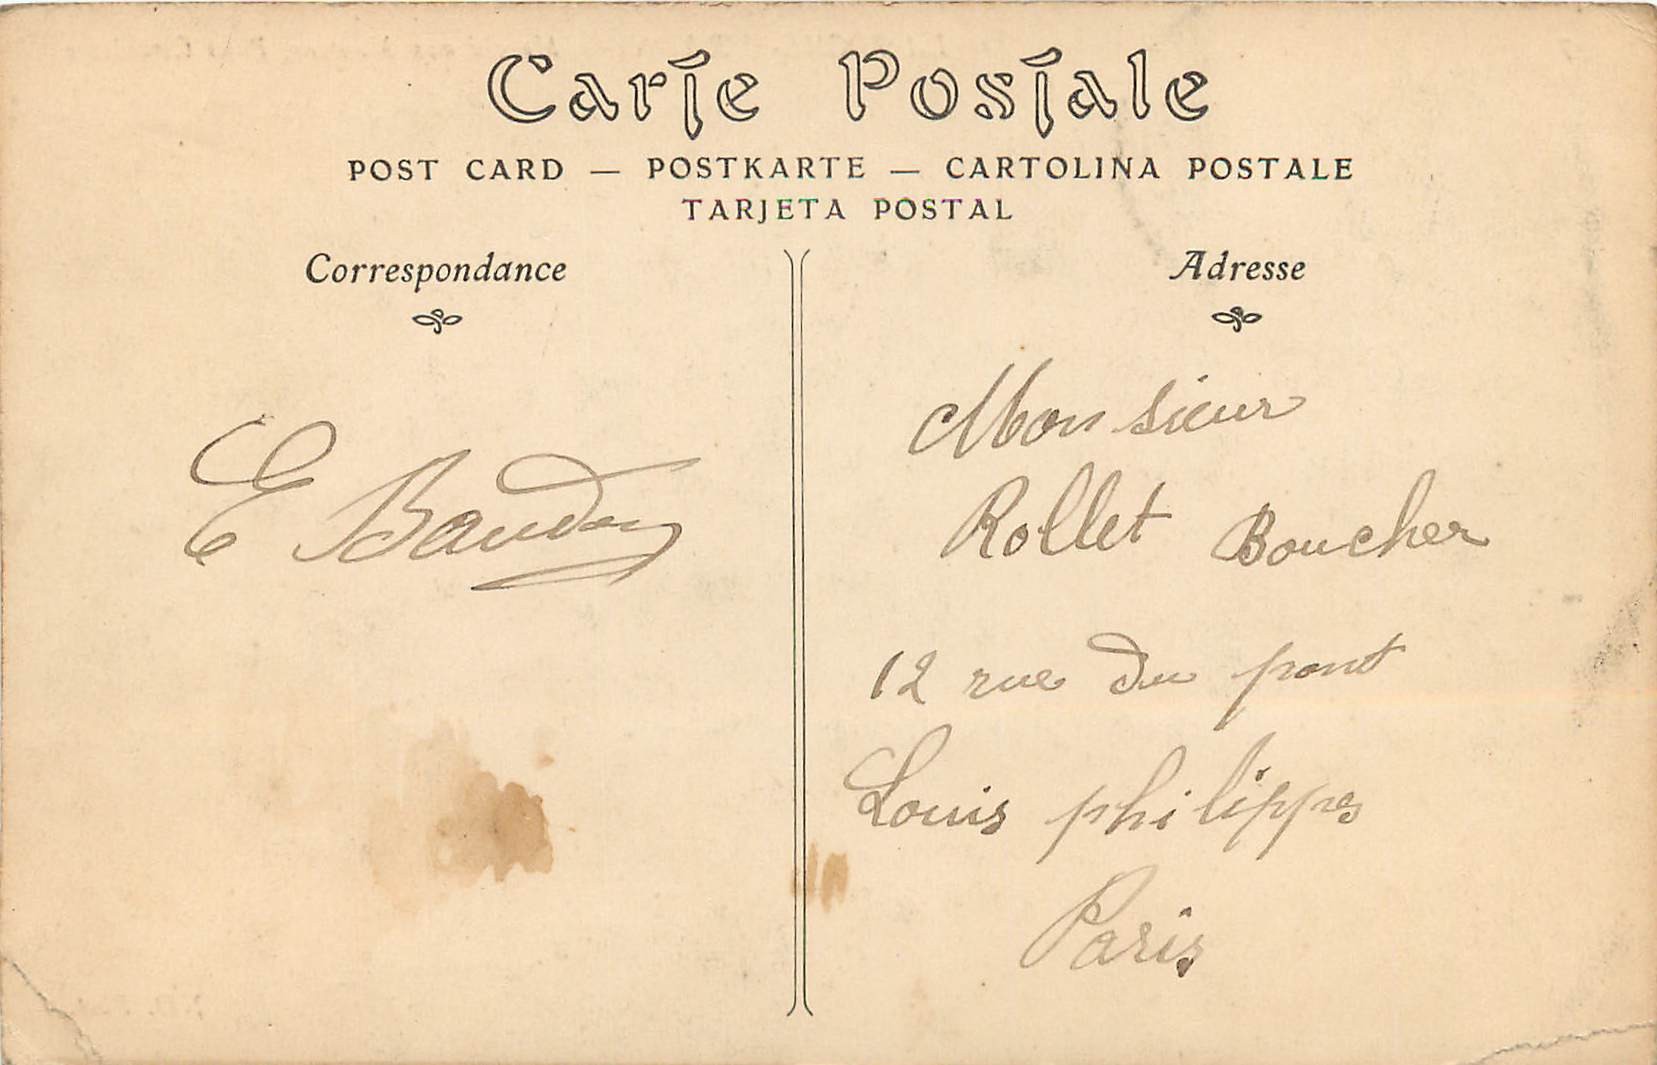 Carte Postale
POST CARD — POSTKARTE — CARTOLINA POSTALE
TARJETA POSTAL
Correspondance
E
Adresse
Monsieur
Rollet Boucher
12 rue du pont
Louis philippe
Paris